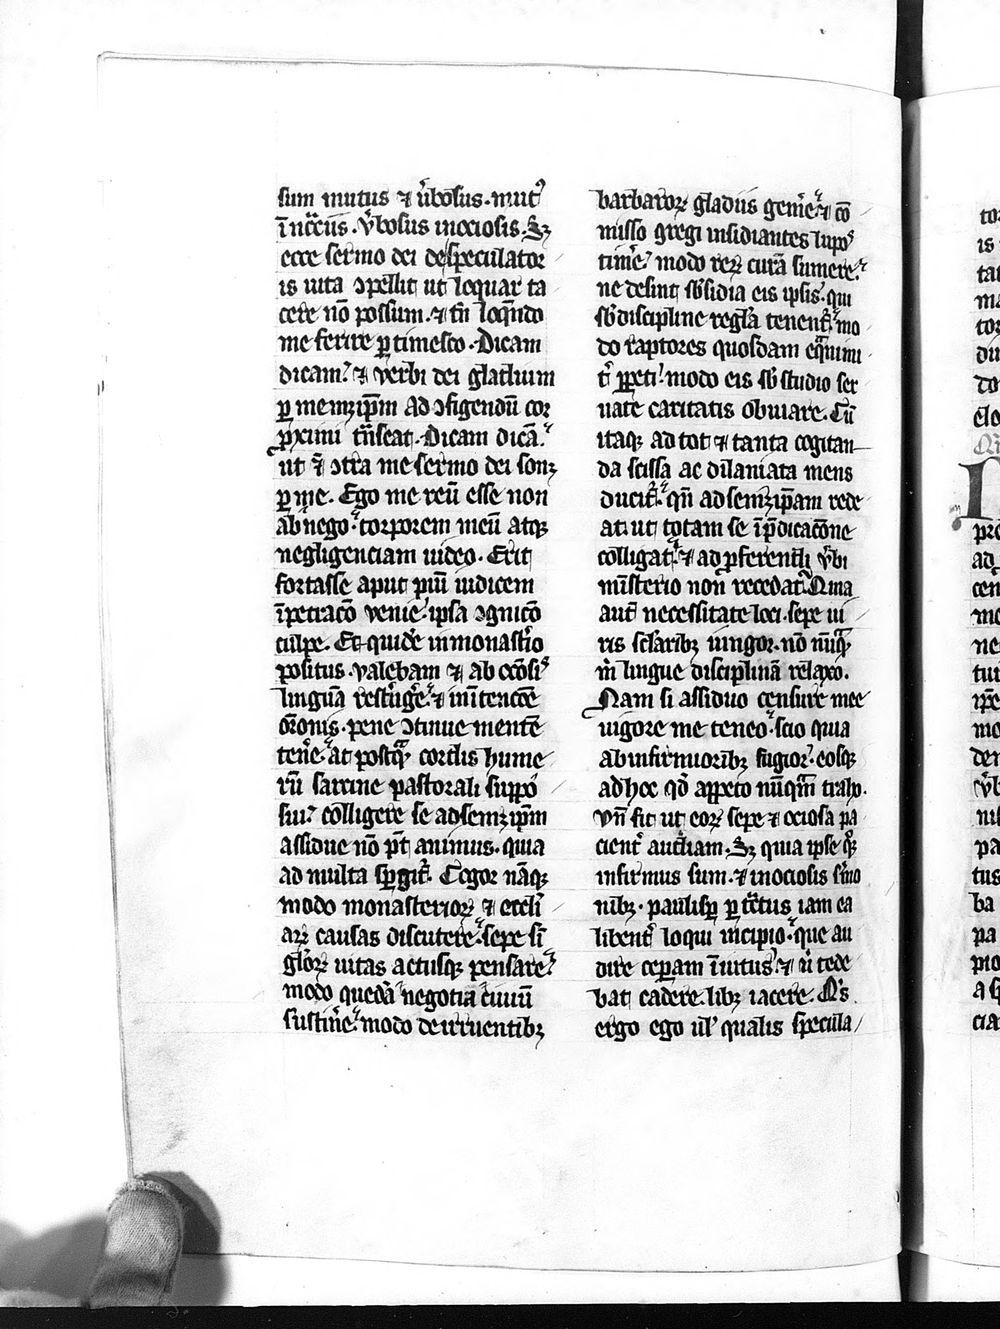 sum mutus ⁊ v̓bosus. mut᷒
ī nēc̄eīs. v̓bosus ī ociosis. Sꝫ
ecce sermo dei de speculator
is vita ↄpellit ut loquar ta
cere nō possum. ⁊ tn̄ loq̄ndo
me ferire ꝑtimesco. Dicam
dicam. ⁊ verbi dei gladium
ꝑ memꝫip̄m ad ↄfigendū cor
ꝓximi tn̄seat. Dicam dicā.
ut ⁊ ↄtra me sermo dei sonꝫ
ꝑ me. Ego me reū esse non
abnego. torporem meū atqꝫ
negligenciam video. Erit
fortasse aput piū iudicem
īpetracō venie. ipsa ↄgnicō
culpe. Et quidē in monast̓io
positus. valebam ⁊ ab ociosi᷒
linguā restrīge. ⁊ in ītencōe
or̄onis. pene ↄtinue mentē
ten̓e. at postq̄ᵃ cordis hume
rū sarcine pastorali suppo
sui. colligere se ad semꝫip̄m
assidue nō pt̄ animus. quia
ad multa spgit̄. Cogor nāqꝫ
modo monasterioꝝ ⁊ eccl̄i
aꝝ causas discutere. sepe sī
gl̓oꝝ vitas actusqꝫ pensare.
modo quedā negotia ciuiū
sustin̓e. modo de irruentibꝫ
barbaroꝝ gladiis gem̓e. ⁊ cō
misso gregi insidiantes lupos
tim̓e. modo reꝝ curā sumere.
ne desint sb̓sidia eis ipsis. qui
sb̓ discipline regl̓a tenent̄. mo
do raptores quosdam eq̄nimi
t̓ ꝑpeti. modo eis sb̓ studio ser
uate caritatis obuiare. Cū
itaqꝫ ad tot ⁊ tanta cogitan
da scissa ac dilaniata mens
ducit̄. qn̄ ad semꝫip̄am rede
at. ut totam se ī p̄dicacōne
colligat. ⁊ ad ꝓferendi v̓bi
mīsterio non recedat. Quia
autē necessitate loci. sepe ui
ris sc̄laribꝫ iungor. nō nūqᵃ
m̓ lingue disciplinā relaxo.
Nam si assiduo censure mee
uigore me teneo. scio quia
ab infirmioribꝫ fugior. eosqꝫ
ad hoc qd̄ appeto nūqᵃm traho.
Vn̄ fit ut eoꝝ sepe ⁊ ociosa pa
cient̓ audiam. Sꝫ quia ipse qoqꝫ
infirmus sum. ⁊ in ociosis s̓mo
nibꝫ. paulisꝑ ꝑtctus iam ea
libent̓ loqui incipio. que au
dire ceperam īuitus. ⁊ ubi tede
bat cadere. libꝫ iacere. Qis
ergo ego uel qualis specula